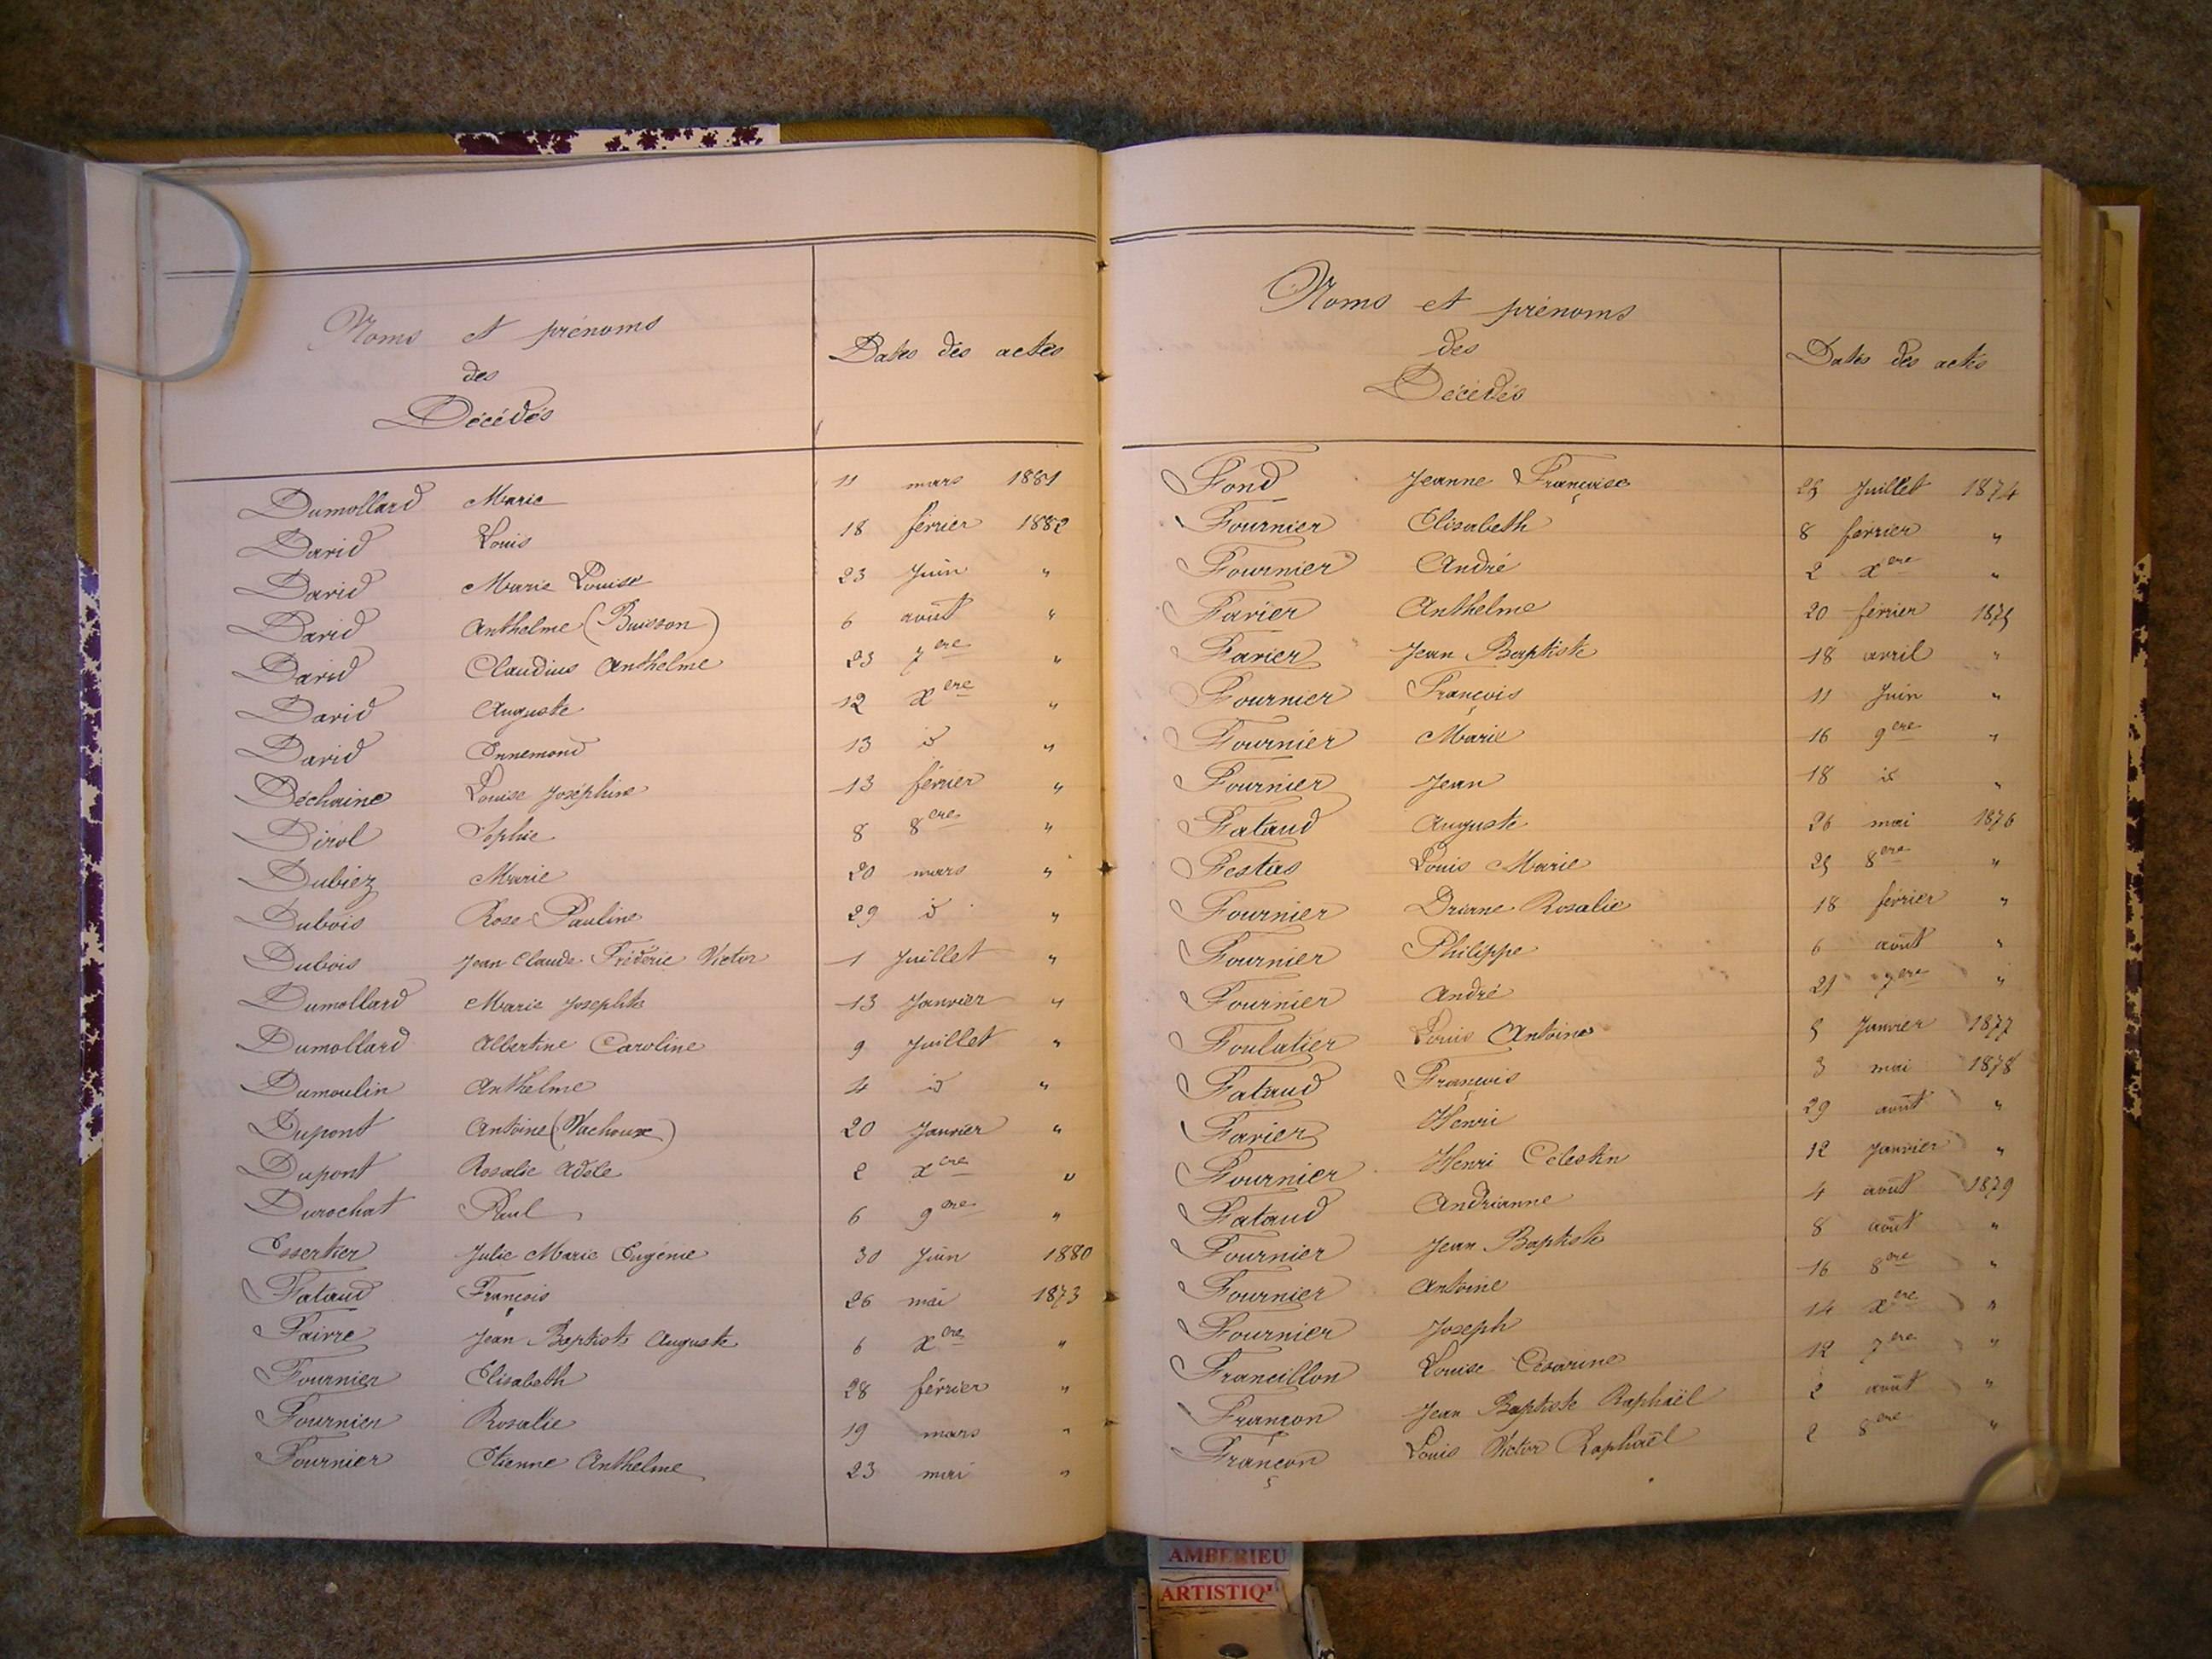 Noms et prénoms
des
Décédés
Dates des actes
Dumollard Marie 11 mars 1881
David Louis 18 février 1882
David Marie Louise 23 Juin "
David Anthelme (Buisson) 6 août "
David Claudius Anthelme 23 7ere "
David Auguste 12 Xere "
David Ennemond 13 id "
Déchaine Louise Joséphine 13 février "
Dérol Sophie 8 8ere "
Dubiez Marie 20 mars "
Dubois Rose Pauline 29 id "
Dubois Jean Claude Fréderic Victor 1 Juillet "
Dumollard Marie Josephte 13 Janvier "
Dumollard Albertine Caroline 9 Juillet "
Dumoulin Anthelme 4 id "
Dupont Antoine (Vachoux) 20 Janvier "
Dupont Rosalie Adèle 2 Xere "
Durochat Paul 6 9ere "
Essertier Julie Marie Eugénie 30 Juin 1880
Fataud François 26 mai 1873
Faivre Jean Baptiste Auguste 6 Xere "
Fournier Elisabeth 28 février "
Fournier Rosalie 19 mars "
Fournier Etienne Anthelme 23 mai "
Noms et prénoms
des
Décédés
Dates des actes
Fond Jeanne Françoise 25 Juillet 1874
Fournier Elisabeth 8 février "
Fournier André 2 Xere "
Favier Anthelme 20 février 1875
Favier Jean Baptiste 18 avril "
Fournier François 11 Juin "
Fournier Marie 16 9ere "
Fournier Jean 18 id "
Fataud Auguste 26 mai 1876
Festas Louis Marie 25 8ere "
Fournier Rosalie 18 février "
Fournier Philippe 6 août "
Fournier André 21 7ere "
Foulatier Louis Antoine 5 Janvier 1877
Fataud François 3 mai 1878
Favier Henri 29 août "
Fournier Henri Célestin 12 Janvier "
Fataud Andrianne 4 août 1879
Fournier Jean Baptiste 8 août "
Fournier Antoine 16 8ere "
Fournier Joseph 14 Xere "
Francillon Louise Césarine 12 7ere "
Françon Jean Baptiste Raphaël 2 août "
Françon Louis Victor Raphaël 2 8ere "
AMBERIEU
ARTISTIQ